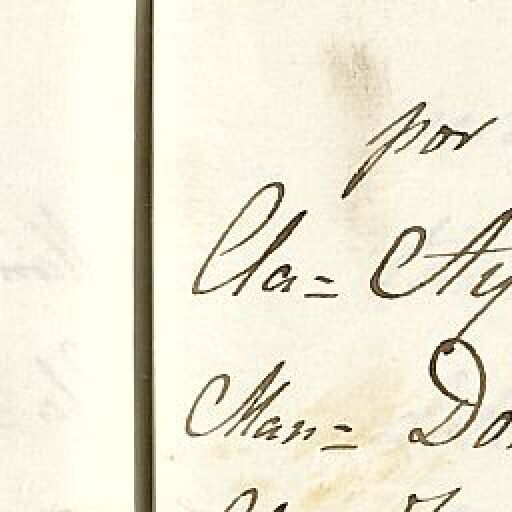 por
Cla= Ay
Man= Do